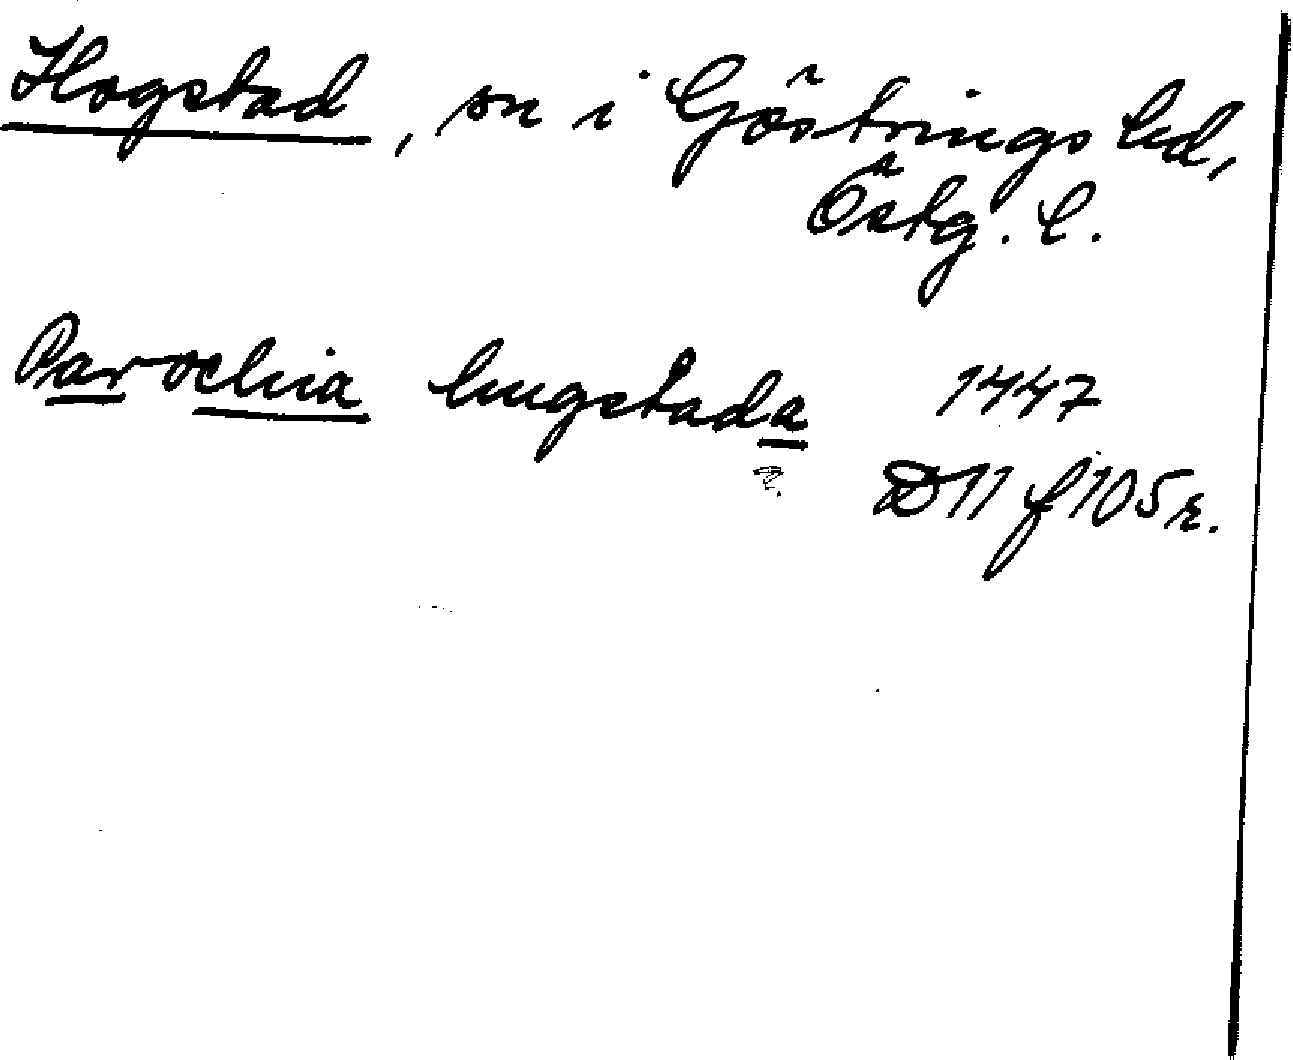 Hogstad, sn i Göstrings hd,
Östg. l.
Parochia hugstada 1447
D11 f 105 r.